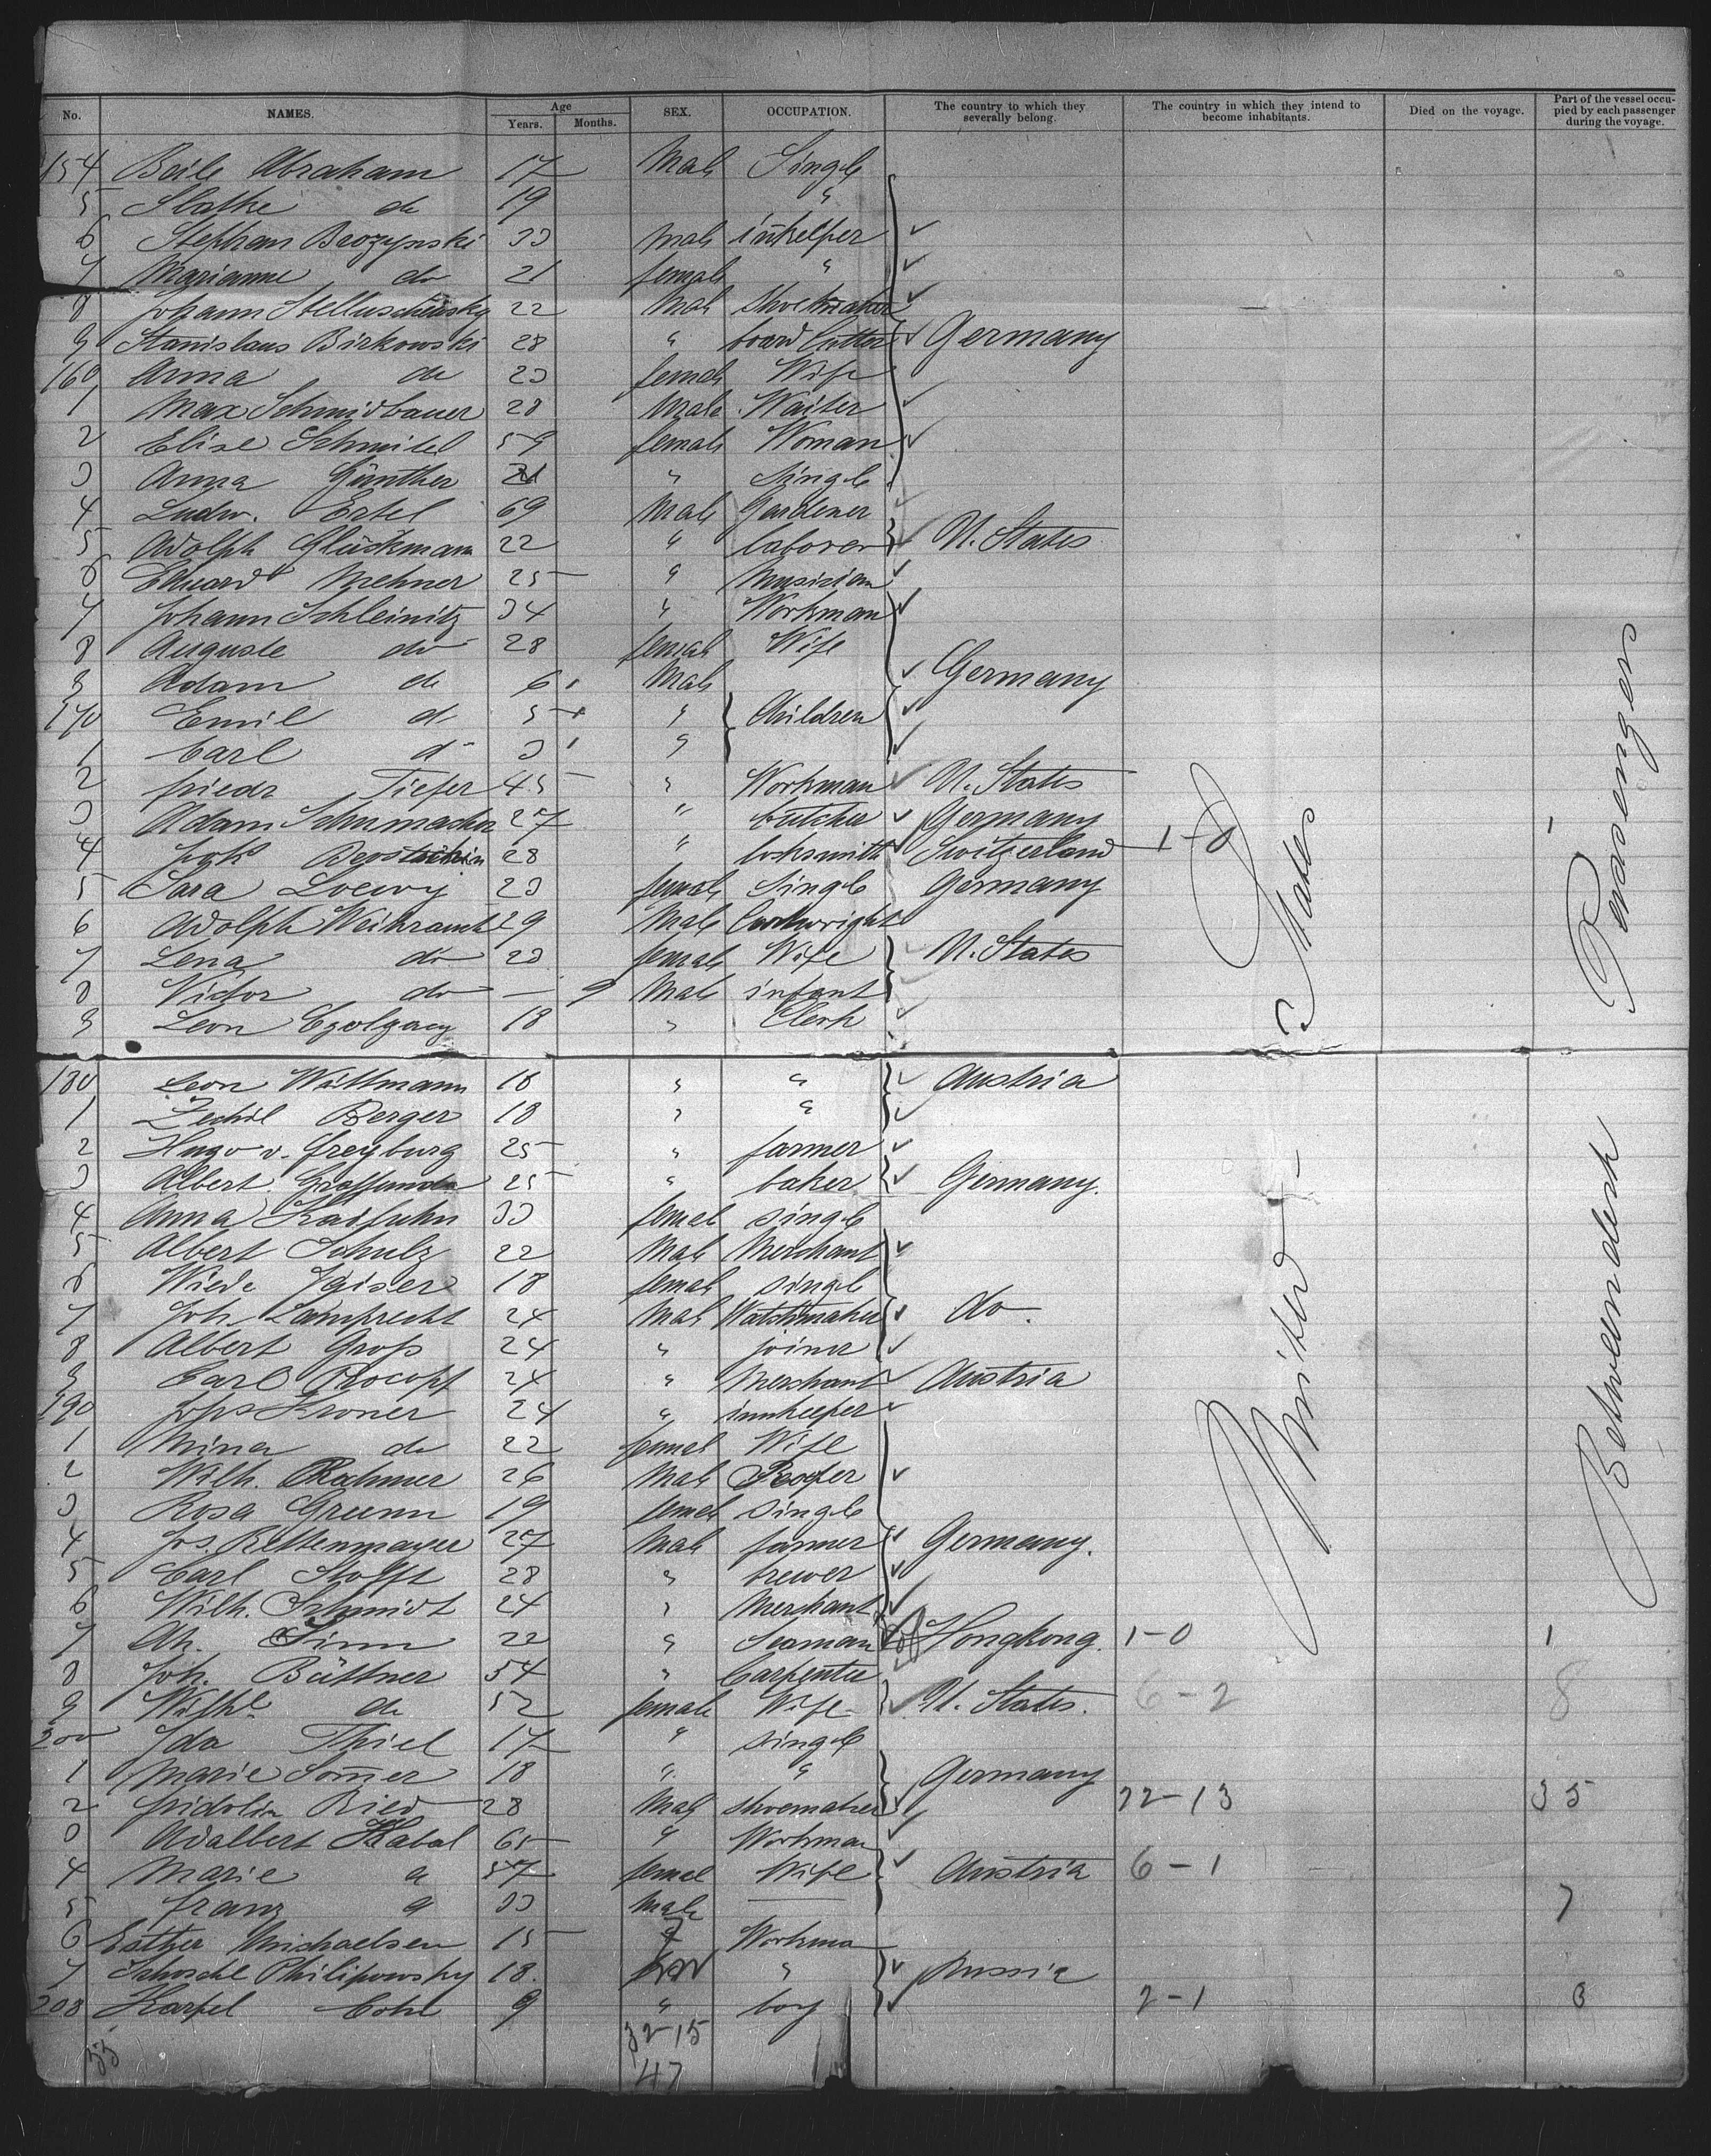 No. NAMES. Age Years. Months. SEX. OCCUPATION. The country to which they severally belong. The country in which they intend to become inhabitants. Died on the voyage. Part of the vessel occupied by each passenger during the voyage.
154 Beile Abraham 17 Male Single
5 Slatke do 19 "
6 Stephan Brozynski 33 Male
7 Marianne do 21 female "
8 Johann 22 Male Shoemaker
9 Stanislaus Birkowski 28 " board Cutter Germany
160 Anna do 23 female Wife
1 Max Schmidbauer 28 Male Waiter
2 Elise 59 female Woman
3 Anna Günther 21 " Single
4 Ludw. Ertel 69 Male Gardener
5 Adolph Glückmann 22 " laborer U. States
6 Eduard Mehner 25 " Musician
7 Johann Schleinitz 34 " Workman
8 Auguste do 28 female Wife
9 Adam do 6 Male Germany
170 Emil do 5 " Children
1 Carl do 3 "
2 friedr Tiefer 45 " Workman U. States
3 Adam Schumacher 27 " butcher Germany
4 28 " locksmith Switzerland 1-0
5 Sara Loewy 23 female single Germany
6 Adolph 29 Male
7 Lena do 23 female Wife U. States
8 Victor do — 9 Male infant
9 Leon 18 " Clerk
180 Leon Wittmann 18 " " Austria
1 Berger 18 " "
2 Hugo v. Freyburg 25 " farmer
3 Albert 25 " baker Germany.
4 Anna 33 femal single
5 Albert Schulz 22 Male Merchant
6 18 female single
7 Joh. Lamprecht 24 Male Watchmaker do.
8 Albert Groß 24 " joiner
9 Carl Procopf 24 " Merchant Austria
190 Kroner 24 " innkeeper
1 Mina do 22 femal Wife
2 Wilh. Rahmer 26 Male
3 Rosa Gruenn 19 femal single
4 Jos. Rettenmayer 27 Male farmer Germany.
5 Carl Stofft 28 " brewer
6 Wilh. Schmidt 24 " Merchant
7 Ah. Sinn 22 " Seaman Hongkong. 1-0 1
8 Joh. Büttner 54 " Carpenter
9 Wilhe do 52 female Wife U. States. 6-2 8
200 Ida Thiel 17 " single
1 Marie Som̅er 18 " " Germany
2 fridolin Ried 28 Male shoemaker 22-13 35
3 Adalbert Habal 65 " Workman
4 Marie 57 femal Wife Austria 6-1
5 franz 33 Male — 7
6 Esther Michaelsen 15 Workma
7 Philipowsky 18. " Russia
208 Karpel 9 " boy 2-1 3
32-15
47
United States
Between deck Passengers